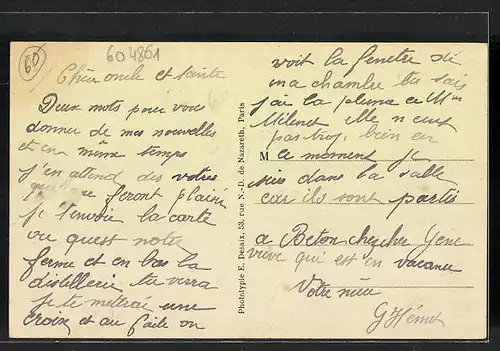 60
604861
Chèr oncle et tante
Deux mots pour vous
donner de mes nouvelles
et en même temps
j'en attend des votres
qui me feront plaisir
je t'envoir la carte
ou quest notre
ferme et en bas la
distillerie tu verra
je te mettrai une
croix et au faite on
Phototypie E. Desaix, 53, rue N.-D. de Nazareth, Paris
voit la fenetre de
ma chambre tu sais
j'ai la plume a Mme
elle n'ecrit
pas trop bien en
M ce moment je
suis dans la salle
car ils sont partis
a Beton chercher Gene
vieve qui est en vacance
Votre
G Hémet